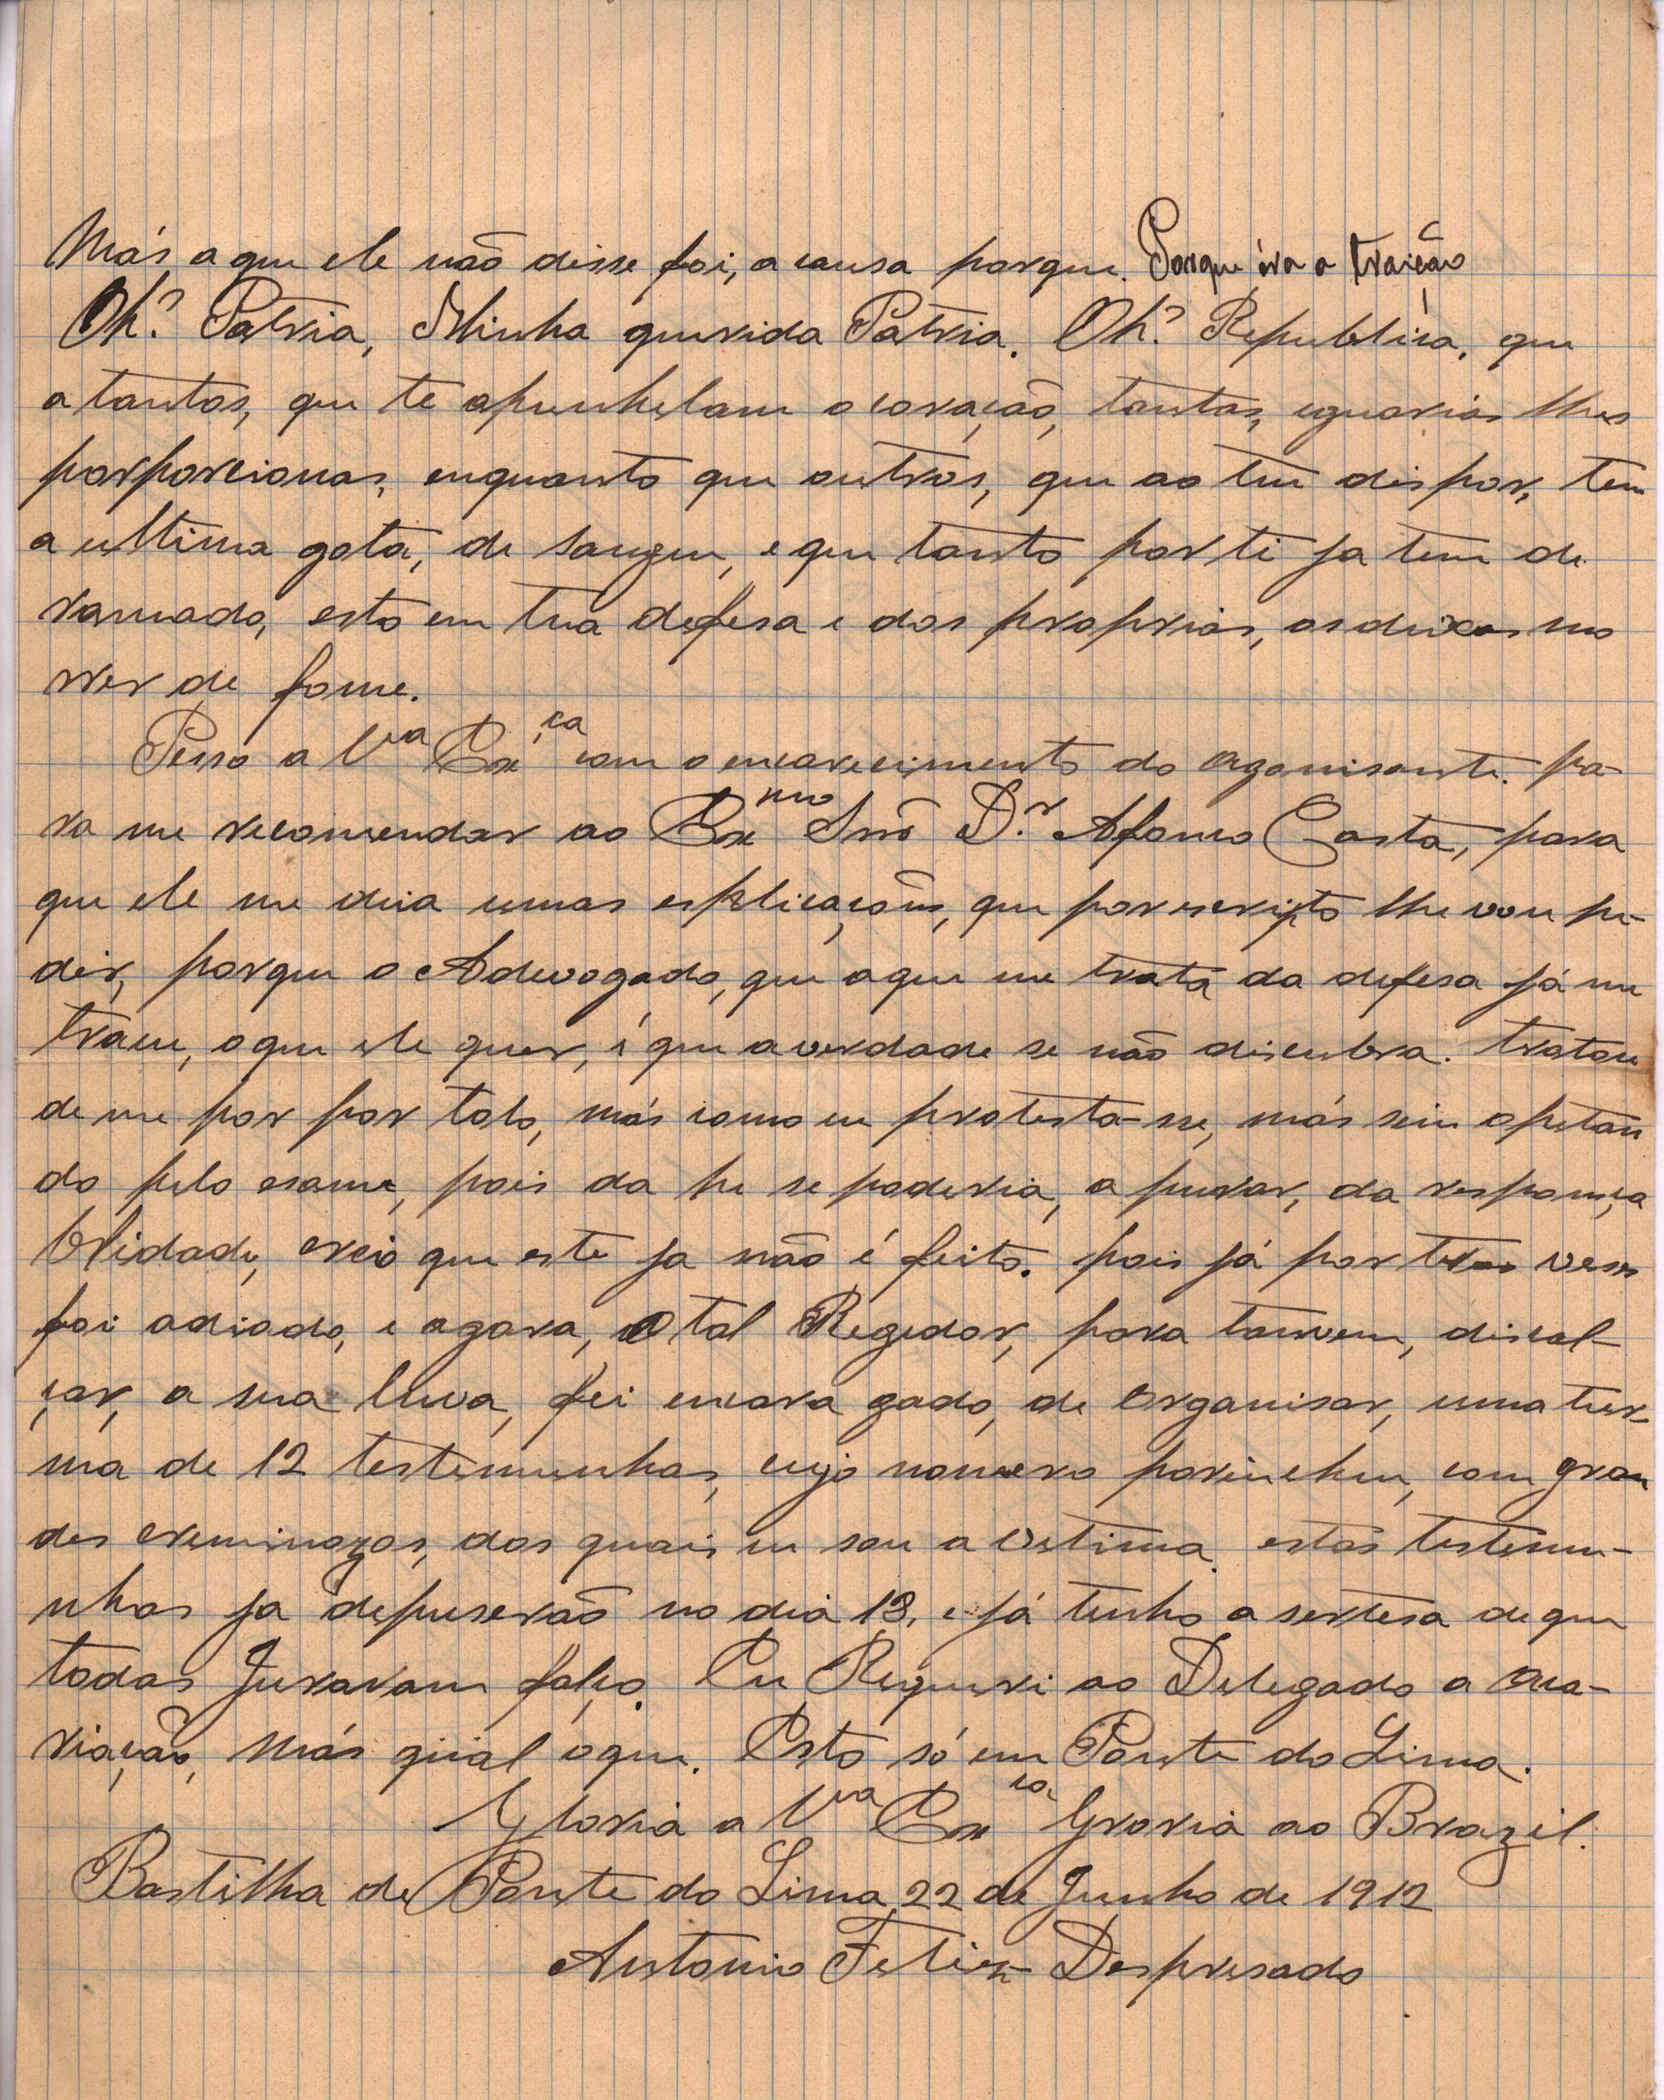 Más, a que ele não disse foi, a causa porque. Porque éra a traição
Oh? Patria, Minha querida Patria. Oh? Republica, que
a tantos, que te apunhelam o coração, tantas, eguarias lhes
porporcionas, enquanto que outros, que ao teu dispor, tem
a ultima gota, de sangue, e que tanto por ti ja tem de
ramado, esto em tua defesa e dos proprios, os deixas mo
rrer de fome.
Pesso a Vª Exçª com o encarecimento do agonisante. pa-
ra me recomendar ao Exmo Snr Dr. Afonso Costa, para
que ele me deia umas esplicações, que por escripto lhe vou pe-
dir, porque o Adevogado, que aqui me trata da defesa já me
traiu, o que ele quer, é que a verdade se não discubra. tratou
de me por por tolo, más como eu protestá-se, más sim opetan
do pelo esame, pois da hi se poderia, a purar, da responça
blidade, creio que este ja não é feito. pois já por tres veses
foi adiado, e agora, o tal Regedor, para tamvem, discal-
çar, a sua luva, fei encara gado, de organisar, uma tur-
ma de 12 testemunhas, cujo nomero porincheu, com gran
des creminozos, dos quais eu sou a vitima. estas testemu-
nhas ja depuserão no dia 13, e já tenho a sertesa de que
todas Juraram falço. Eu Requeri ao Delegado a qua-
riação, Más qual óque. Esto só em Ponte do Lima.
Gloria a Vª Exçª Groria ao Brazil.
Bastilha de Ponte do Lima 22 de Junho de 1912
Antonio Feliz Despresado